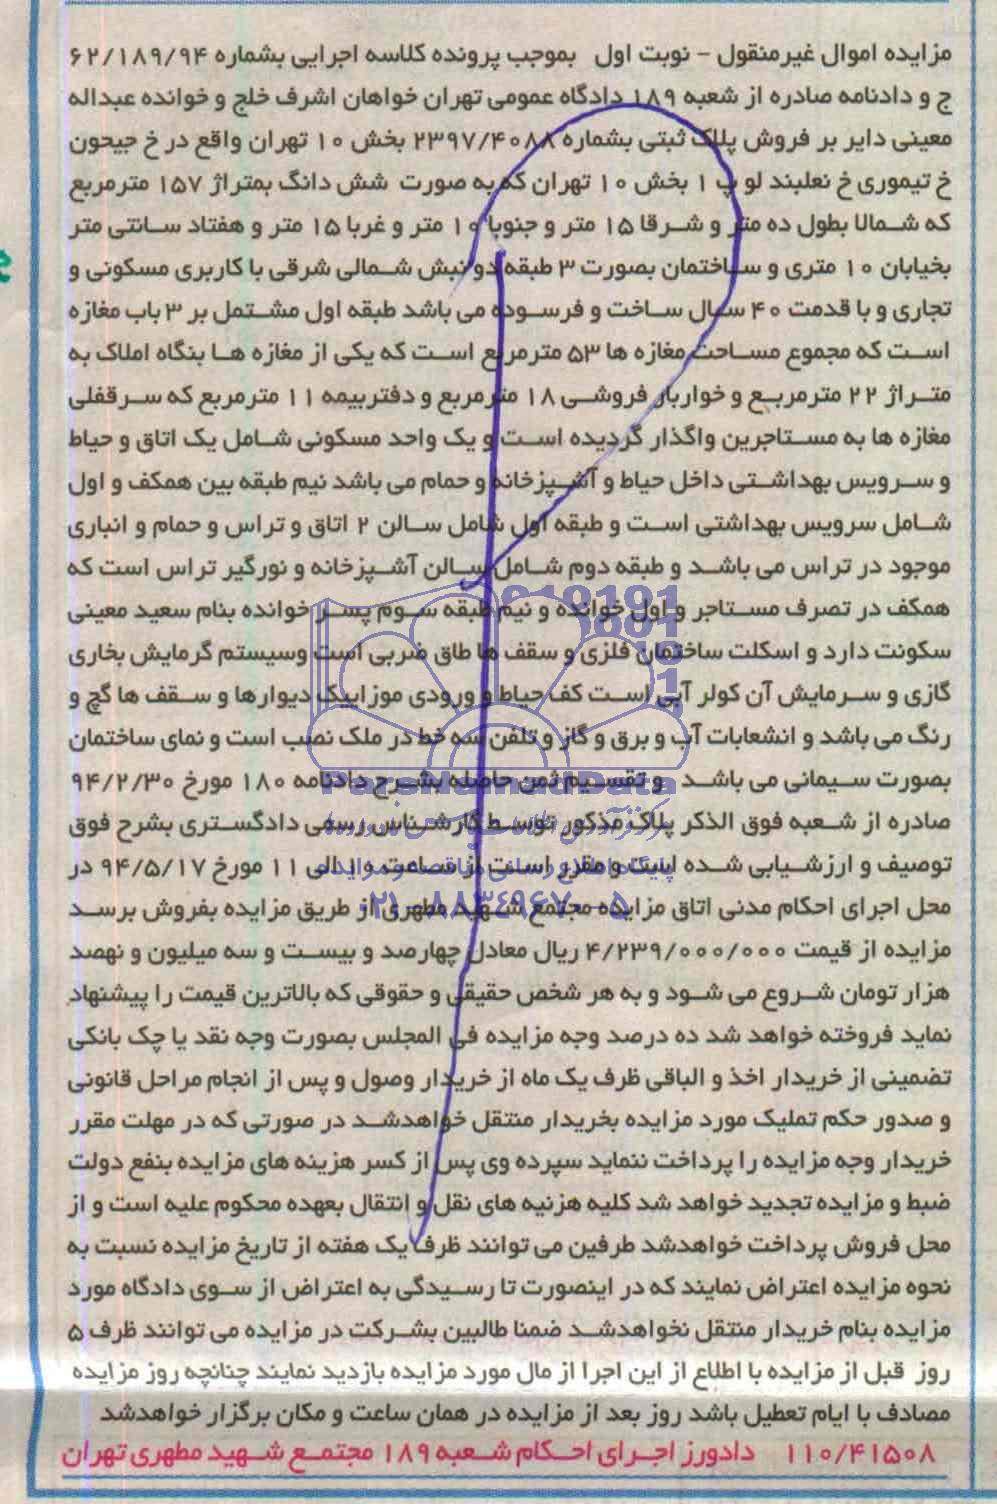 مزایده اموال غیرمنقول - نوبت اول بموجب پرونده کلاسه اجرایی بشماره ۶۲/۱۸۹/۹۴
ج و دادنامه صادره از شعبه ۱۸۹ دادگاه عمومی تهران خواهان اشرف خلج و خوانده عبداله
معینی دایر بر فروش پلاک ثبتی بشماره ۲۳۹۷/۴۰۸۸ بخش ۱۰ تهران واقع در خ جیحون
خ تیموری خ نعلبند لو پ ۱ بخش ۱۰ تهران که به صورت شش دانگ بمتراژ ۱۵۷ مترمربع
که شمالا بطول ده متر و شرقا ۱۵ متر و جنوبا ۱۰ متر و غربا ۱۵ متر و هفتاد سانتی متر
بخیابان ۱۰ متری و ساختمان بصورت ۳ طبقه دو نبش شمالی شرقی با کاربری مسکونی و
تجاری و با قدمت ۴۰ سال ساخت و فرسوده می باشد طبقه اول مشتمل بر ۳ باب مغازه
است که مجموع مساحت مغازه ها ۵۳ مترمربع است که یکی از مغازه ها بنگاه املاک به
متراژ ۲۲ مترمربع و خواربار فروشی ۱۸ مترمربع و دفتربیمه ۱۱ مترمربع که سرقفلی
مغازه ها به مستاجرین واگذار گردیده است و یک واحد مسکونی شامل یک اتاق و حیاط
و سرویس بهداشتی داخل حیاط و آشپزخانه و حمام می باشد نیم طبقه بین همکف و اول
شامل سرویس بهداشتی است و طبقه اول شامل سالن ۲ اتاق و تراس و حمام و انباری
موجود در تراس می باشد و طبقه دوم شامل سالن آشپزخانه و نورگیر تراس است که
همکف در تصرف مستاجر و اول خوانده و نیم طبقه سوم پسر خوانده بنام سعید معینی
سکونت دارد و اسکلت ساختمان فلزی و سقف ها طاق ضربی است وسیستم گرمایش بخاری
گازی و سرمایش آن کولر آبی است کف حیاط و ورودی موزاییک دیوارها و سقف ها گچ و
رنگ می باشد و انشعابات آب و برق و گاز و تلفن سه خط در ملک نصب است و نمای ساختمان
بصورت سیمانی می باشد و تقسیم ثمن حاصله بشرح دادنامه ۱۸۰ مورخ ۹۴/۲/۳۰
صادره از شعبه فوق الذکر پلاک مذکور توسط کارشناس رسمی دادگستری بشرح فوق
توصیف و ارزشیابی شده است و مقرر است از ساعت ۱۰ الی ۱۱ مورخ ۹۴/۵/۱۷ در
محل اجرای احکام مدنی اتاق مزایده مجتمع شهید مطهری از طریق مزایده بفروش برسد
مزایده از قیمت ۴/۲۳۹/۰۰۰/۰۰۰ ریال معادل چهارصد و بیست و سه میلیون و نهصد
هزار تومان شروع می شود و به هر شخص حقیقی و حقوقی که بالاترین قیمت را پیشنهاد
نماید فروخته خواهد شد ده درصد وجه مزایده فی المجلس بصورت وجه نقد یا چک بانکی
تضمینی از خریدار اخذ و الباقی ظرف یک ماه از خریدار وصول و پس از انجام مراحل قانونی
و صدور حکم تملیک مورد مزایده بخریدار منتقل خواهدشد در صورتی که در مهلت مقرر
خریدار وجه مزایده را پرداخت ننماید سپرده وی پس از کسر هزینه های مزایده بنفع دولت
ضبط و مزایده تجدید خواهد شد کلیه هزنیه های نقل و انتقال بعهده محکوم علیه است و از
محل فروش پرداخت خواهدشد طرفین می توانند ظرف یک هفته از تاریخ مزایده نسبت به
نحوه مزایده اعتراض نمایند که در اینصورت تا رسیدگی به اعتراض از سوی دادگاه مورد
مزایده بنام خریدار منتقل نخواهدشد ضمنا طالبین بشرکت در مزایده می توانند ظرف ۵
روز قبل از مزایده با اطلاع از این اجرا از مال مورد مزایده بازدید نمایند چنانچه روز مزایده
مصادف با ایام تعطیل باشد روز بعد از مزایده در همان ساعت و مکان برگزار خواهدشد
۱۱۰/۴۱۵۰۸ دادورز اجرای احکام شعبه ۱۸۹ مجتمع شهید مطهری تهران